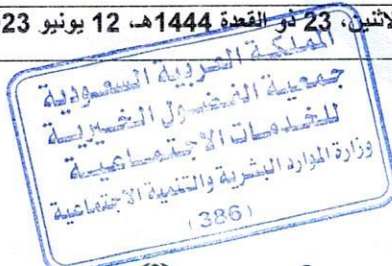 لاثنين، 23 ذو القعدة 1444هـ، 12 يونيو 23
المملكة العربية السعودية
جمعية الفيضول الخيرية
للخدمات الاجتماعية
وزارة الموارد البشرية والتنمية الاجتماعية
(386)